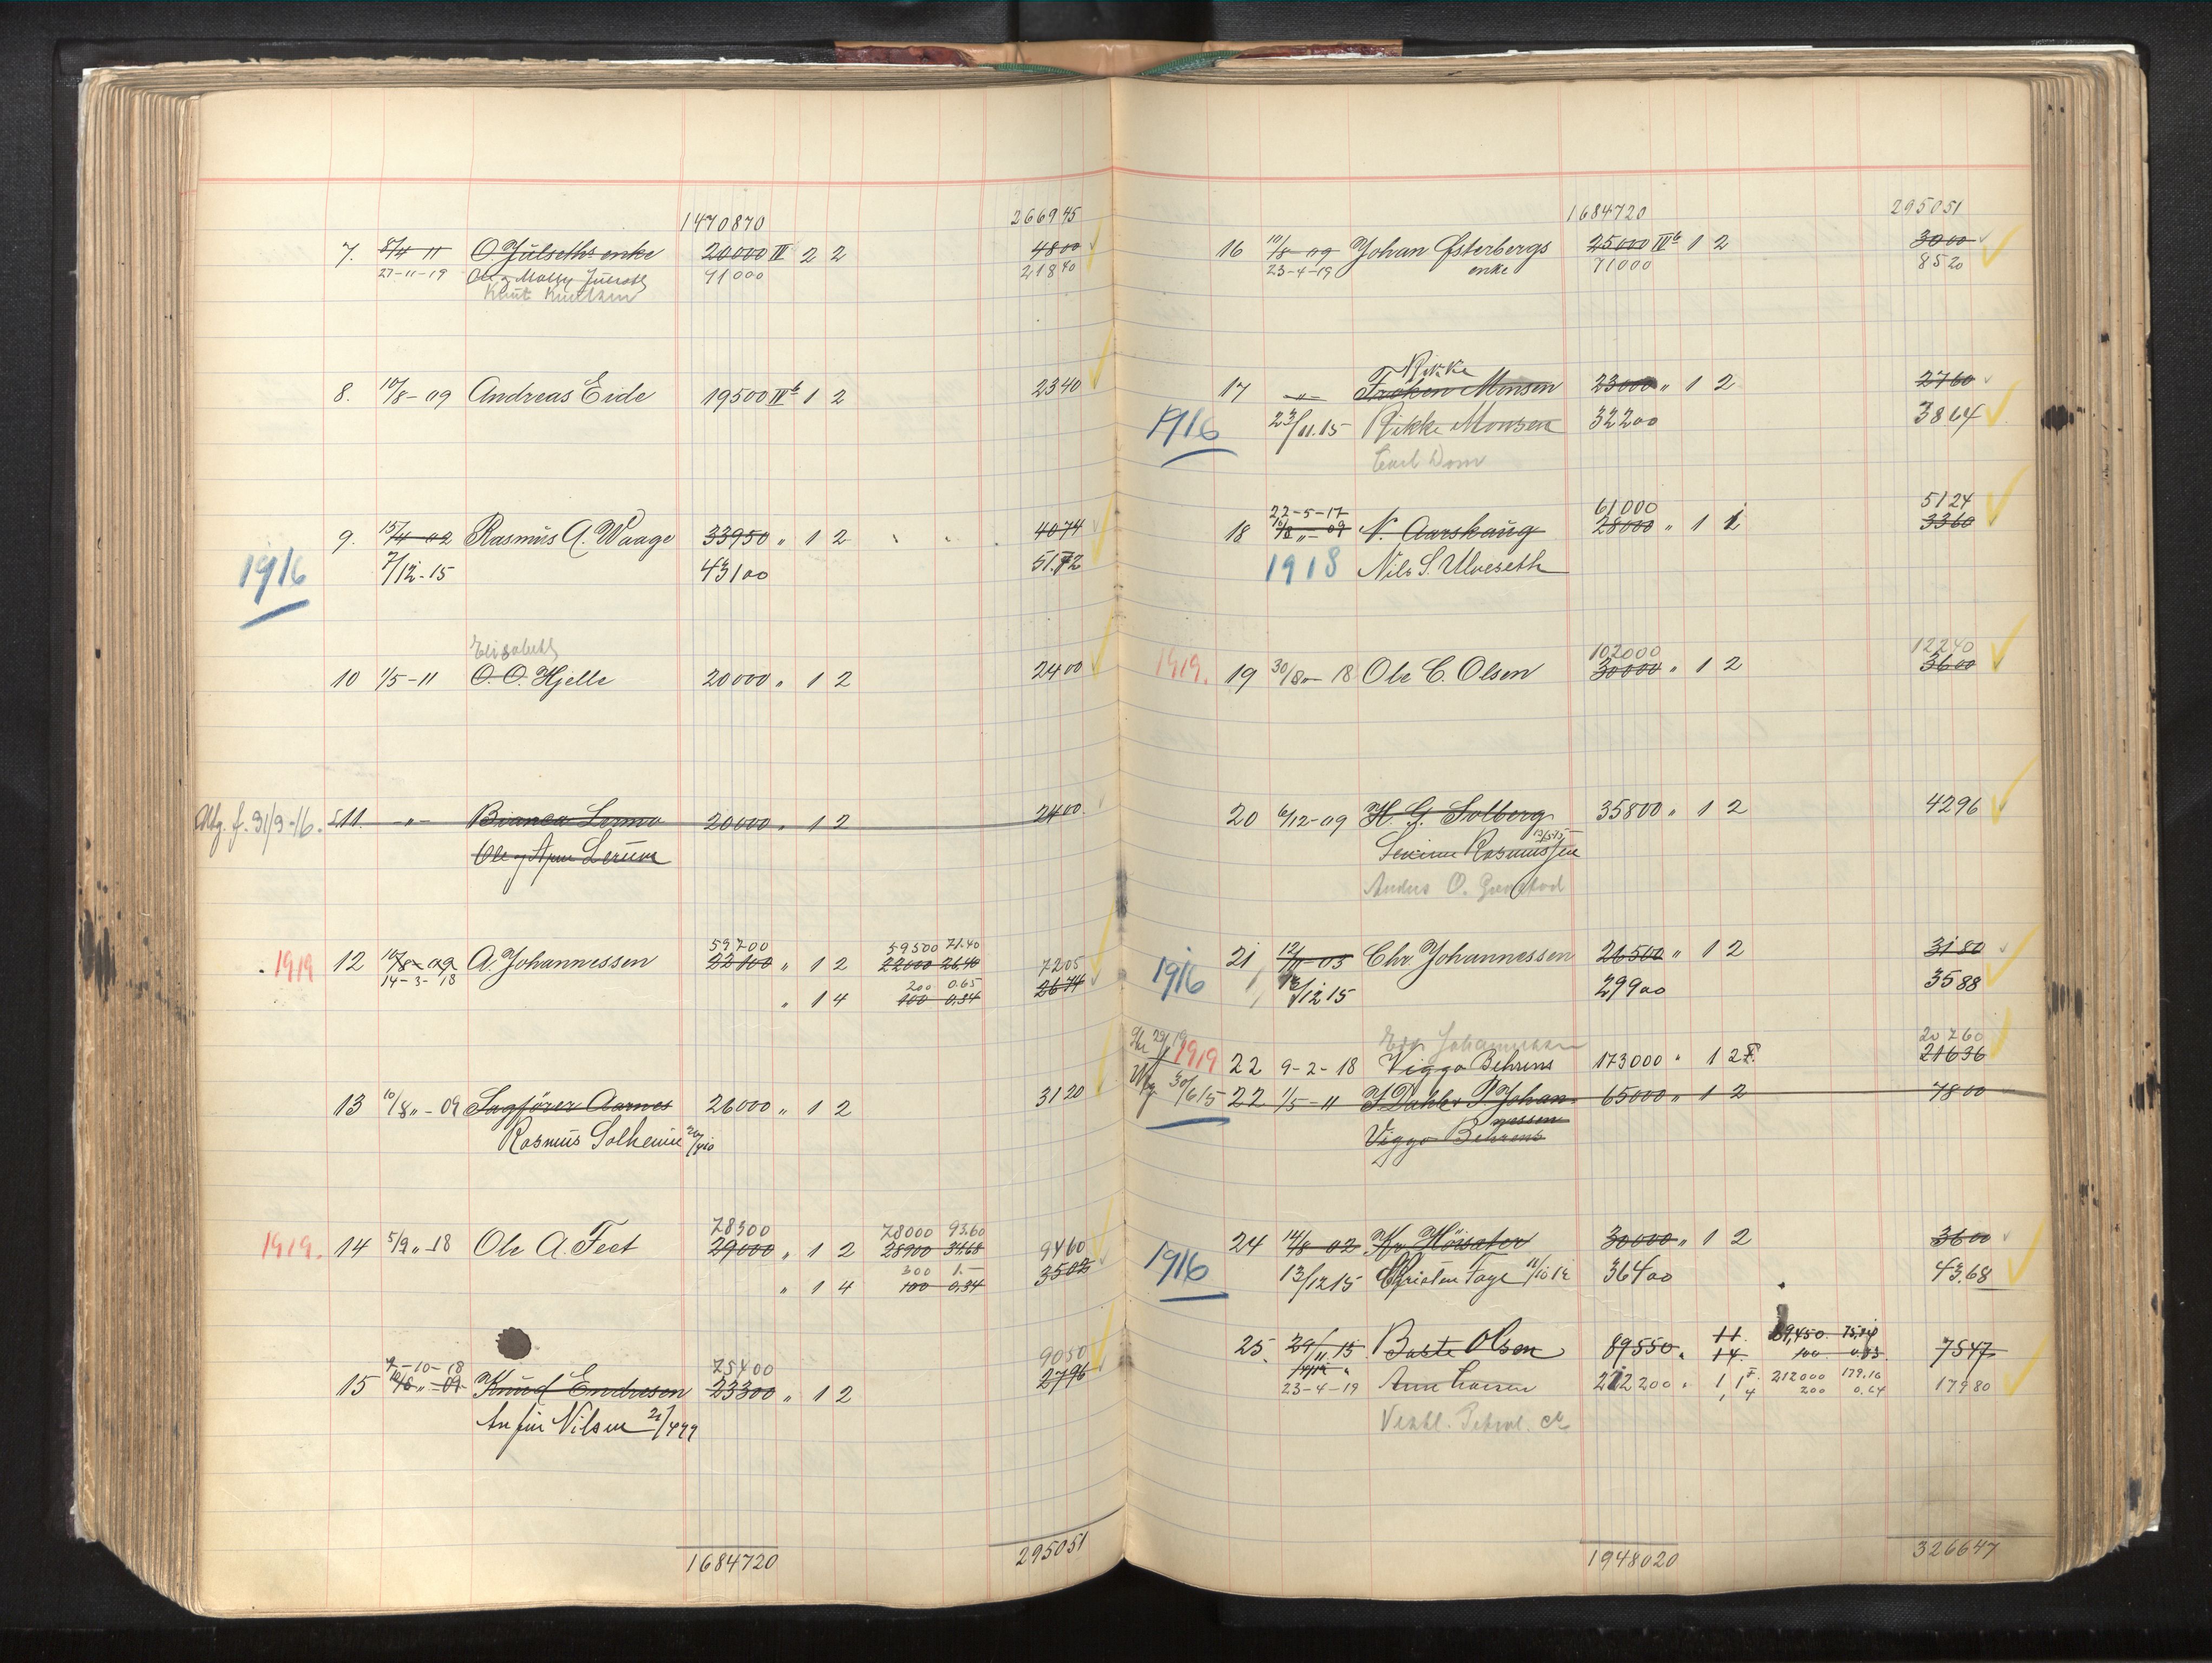 1470870 266945
7. 8/4 11 O. Julseths enke 20000 III 2 2 4800
27-11-19 Molly Julseth 91000 21840
Knut Knutsen
8. 10/8-09 Andreas Eide 19500 IV b 1 2 2340
9. 15/4-02 Rasmus A. Waage 33950 " 1 2 4074
1916 7/12-15 43100 51.72
Elisabeth
10 1/5-11 O. O. Hjelle 20000 " 1 2 2400
Afg. f. 31/3-16. 11. -"- Bianca Lerme 20000 " 1 2 2400
Ole Lerum
59700 59500 71.40
1919 12 10/8-09 A. Johannessen 22100 " 1 2 22000 26.40 7205
14-3-18 200 0.65
" 1 4 100 0.34 2674
13 10/8 " -09 Sagfører Aarnes 26000 " 1 2 3120
Rasmus Solheim
78300 78000 93.60
1919. 14 5/9 " -18 Ole A. Feet 29000 " 1 2 28900 34.68 9460
300 1.-
" 1 4 100 0.34 3502
9-10-18 75400 9050
15 10/8 " -09 Knud Endresen 23300 " 1 2 2796
Anfin Nilsen
1684720 295051
1684720 295051
16 10/8-09 Johan Østerbergs 25000 IV b 1 2 3000
23-4-19 enke 71000 8520
Rikke
17 -"- Frøken Monsen 23000 " 1 2 2760
1916 23/11.15 Rikke Monsen 32200 3864
Carl Dom
22-5-17 61000 5124
18 10/8 " -09 N. Aarskaug 28000 " 1 2 3360
1918 Nils S. Ulveseth
102000 12240
1919. 19 30/8 " -18 Ole C. Olsen 30000 " 1 2 3600
20 6/12-09 H. G. Solberg 35800 " 1 2 4296
Rasmussen
Anders O.
21 12/11-03 Chr. Johannessen 26500 " 1 2 3180
1916 13/12 15 29900 3588
Johannessen 20760
1919 22 9-2-18 Viggo Behrens 173000 " 1 2 F. 21636
Afg 30/6 15 22 1/5-11 J Dahl & P Johan- 65000 " 1 2 7800
nessen
Viggo Behrens
24 14/8-02 Kr. Høisæter 30000 " 1 2 3600
1916 13/12 15 Christen Faye 11/10 12 36400 43.68
25. 29/11 15 Baste Olsen 89550 " 11. 89,450. 75,14 7547
14. 100 0.33
23-4-19 Ann Larsen 212200 " 1 1 F. 212000 179.16 17980
1 4 200 0.64
Vestl. Petrol. Co
1948020 326647